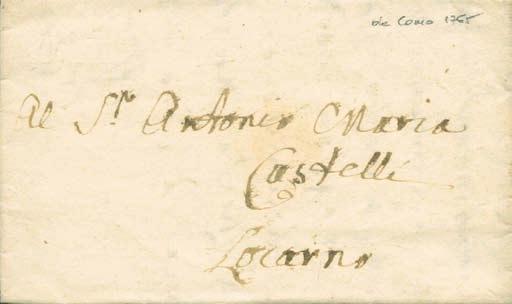 via Como 1765
Al Sr. Antonio Maria
Castelli
Locarno